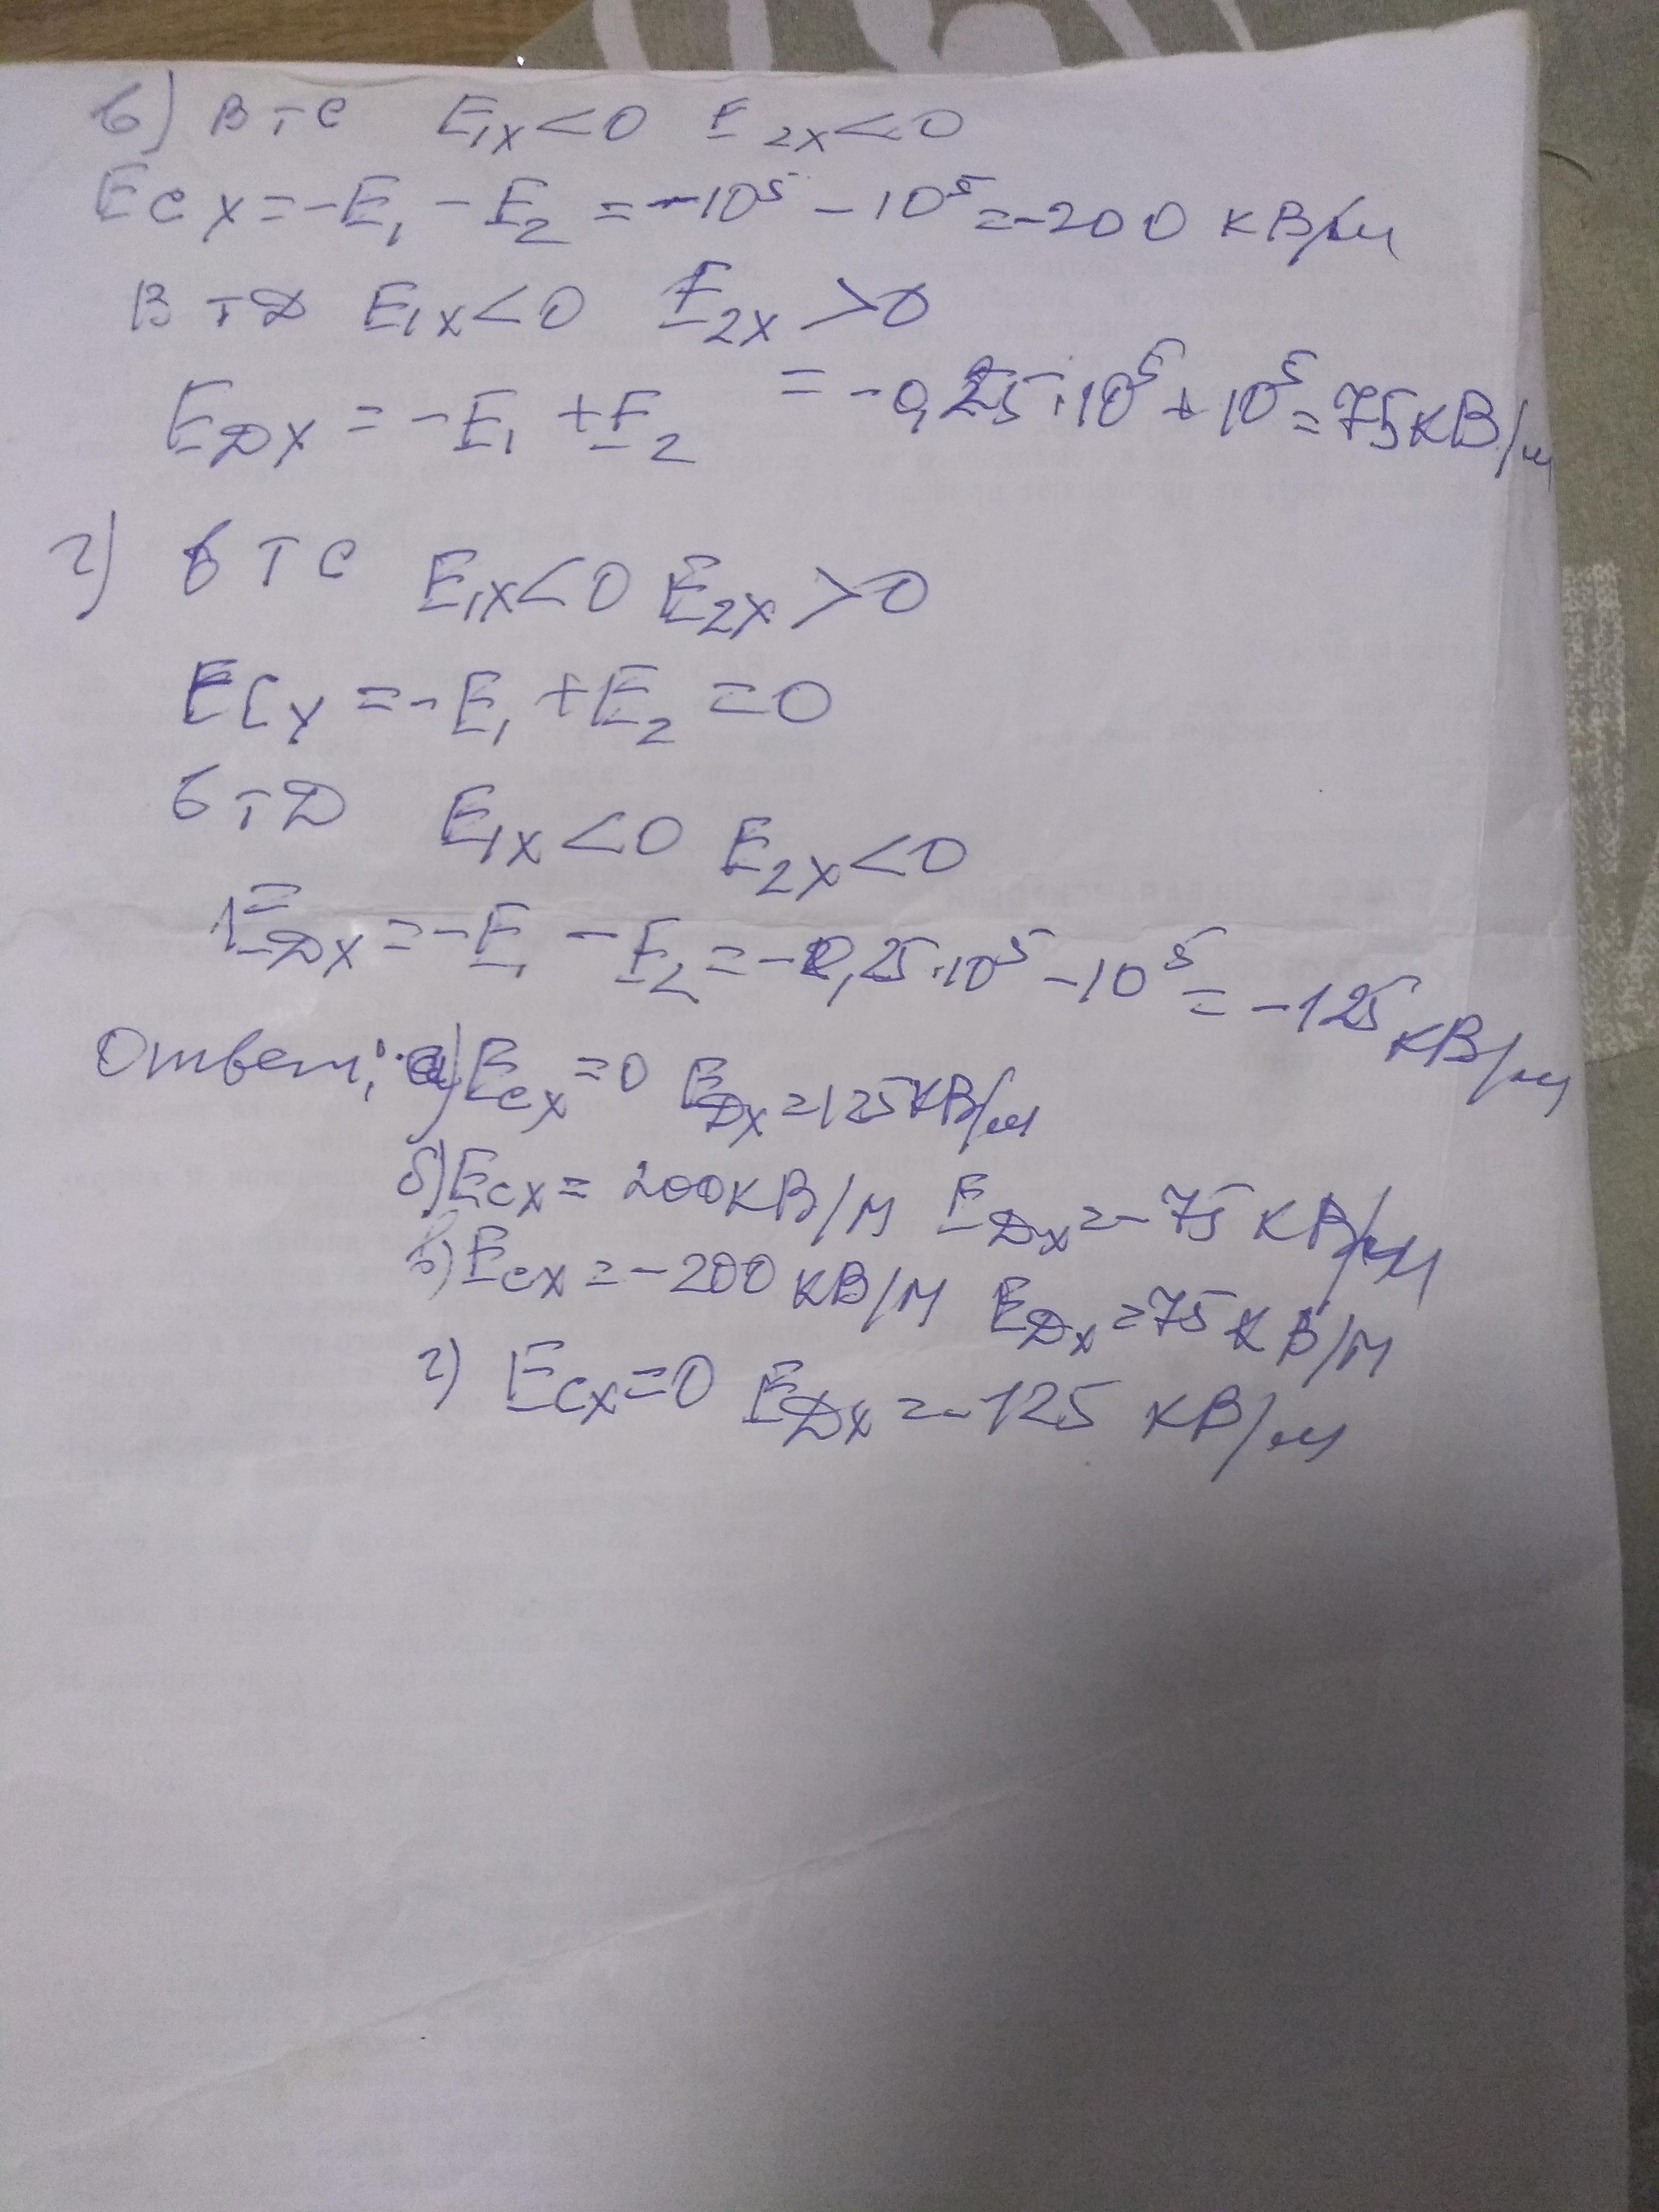 в) в т С E₁ₓ<0 E₂ₓ<0
E c x = -E₁ - E₂ = -10⁵ - 10⁵ = -200 кВ/м
В т D E₁ₓ<0 E₂ₓ>0
E D x = -E₁ + E₂ = -0,25·10⁵ + 10⁵ = 75 кВ/м
г) в т С E₁ₓ<0 E₂ₓ>0
E C x = -E₁ + E₂ = 0
в т D E₁ₓ<0 E₂ₓ<0
E D x = -E₁ - E₂ = -0,25·10⁵ - 10⁵ = -125 кВ/м
Ответ: а) E c x = 0 E D x = 125 кВ/м
б) E c x = 200 кВ/м E D x = -75 кВ/м
в) E c x = -200 кВ/м E D x = 75 кВ/м
г) E c x = 0 E D x = -125 кВ/м